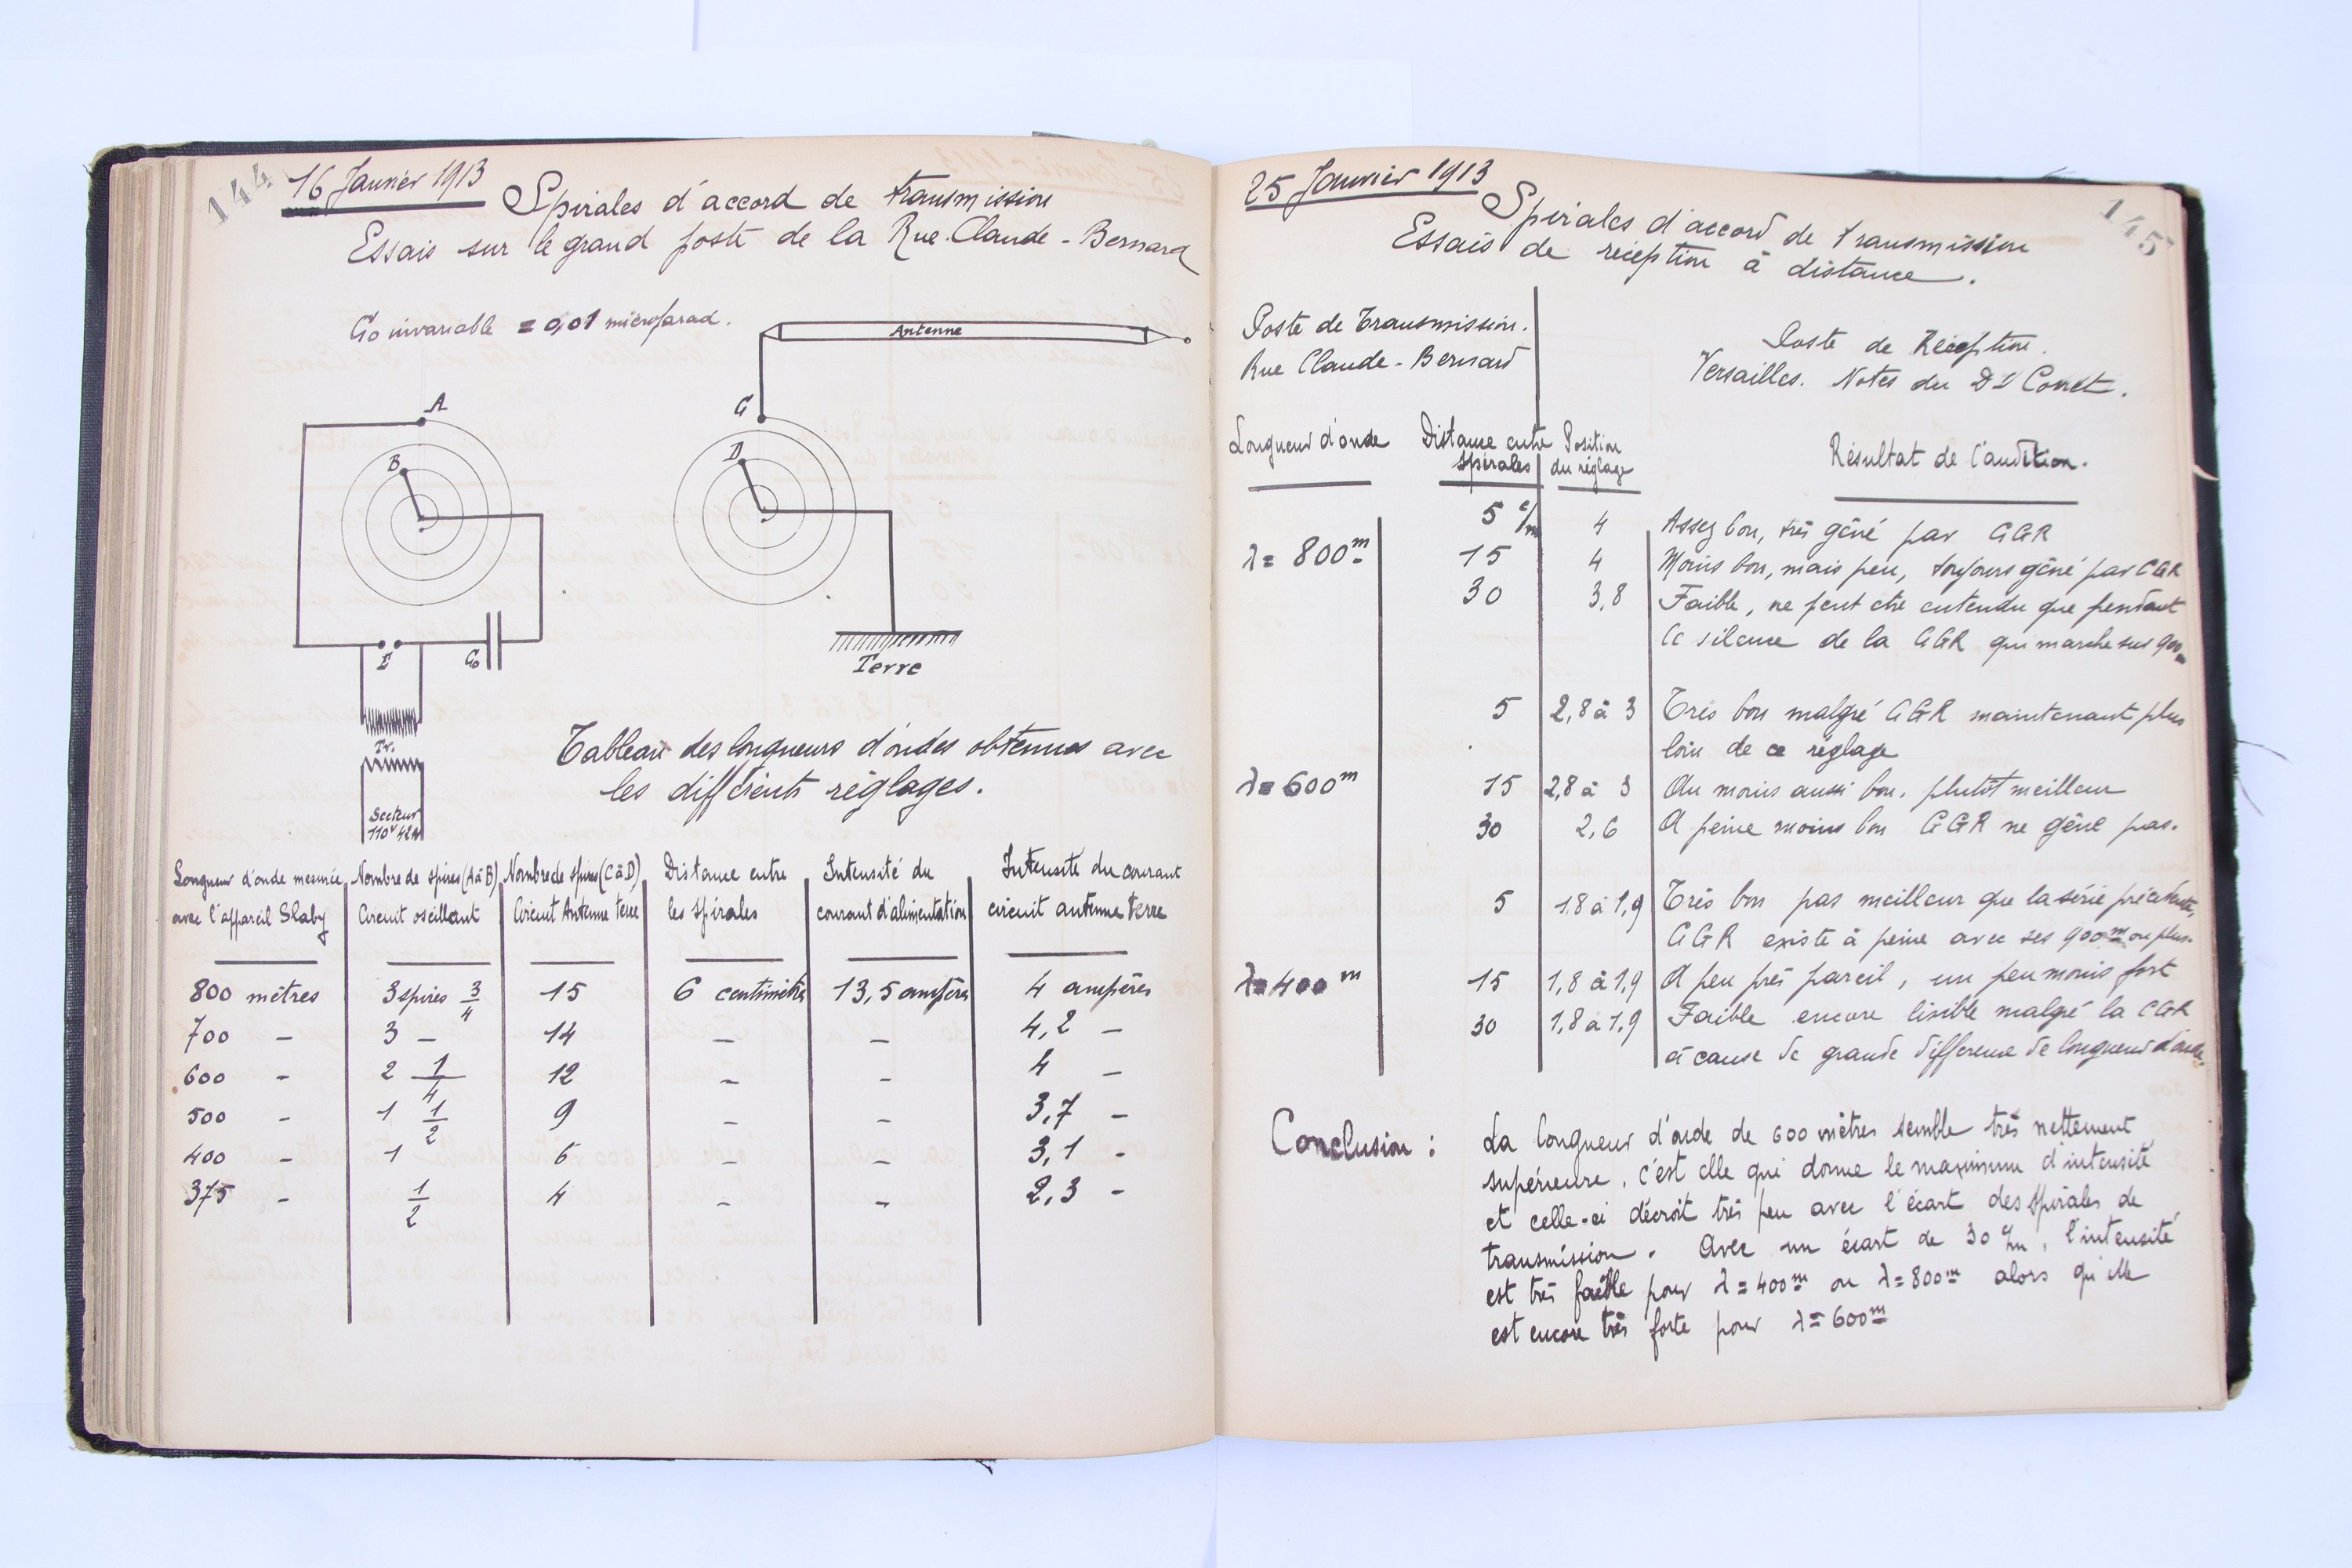 144
16 Janvier 1913
Spirales d'accord de transmission
Essais sur le grand poste de la Rue Claude-Bernard
Co invariable = 0,01 microfarad.
Antenne
A
B
C
D
E
Co
Terre
Tr.
Secteur
110v 42
Tableau des longueurs d'ondes obtenues avec
les différents réglages.
Longueur d'onde mesurée | Nombre de spires (A à B) | Nombre de spires (C à D) | Distance entre | Intensité du | Intensité du courant
avec l'appareil Slaby | Circuit oscillant | Circuit Antenne terre | les spirales | courant d'alimentation | circuit antenne terre
800 mètres | 3 spires 3/4 | 15 | 6 centimètres | 13,5 ampères | 4 ampères
700 - | 3 - | 14 | - | - | 4,2 -
600 - | 2 1/4 | 12 | - | - | 4 -
500 - | 1 1/2 | 9 | - | - | 3,7 -
400 - | 1 | 6 | - | - | 3,1 -
375 - | 1/2 | 4 | - | - | 2,3 -
145
25 Janvier 1913
Spirales d'accord de transmission
Essais de réception à distance.
Poste de Transmission.
Rue Claude-Bernard
Poste de Réception.
Versailles. Notes du Dr Corret.
Longueur d'onde | Distance entre | Position | Résultat de l'audition.
spirales | du réglage
5 c/m | 4 | Assez bon, très gêné par CGR
λ = 800m | 15 | 4 | Moins bon, mais peu, toujours gêné par CGR
30 | 3,8 | Faible, ne peut etre entendu que pendant
le silence de la CGR qui marche sur 900m
5 | 2,8 à 3 | Très bon malgré CGR maintenant plus
loin de ce réglage
λ = 600m | 15 | 2,8 à 3 | Au moins aussi bon, plutôt meilleur
30 | 2,6 | A peine moins bon CGR ne gêne pas.
5 | 1,8 à 1,9 | Très bon pas meilleur que la série précédente,
CGR existe à peine avec ses 900m ou plus.
λ = 400m | 15 | 1,8 à 1,9 | A peu près pareil, un peu moins fort
30 | 1,8 à 1,9 | Faible encore lisible malgré la CGR
à cause de grande difference de longueur d'onde
Conclusion : La longueur d'onde de 600 mètres semble très nettement
supérieure, c'est elle qui donne le maximum d'intensité
et celle-ci décroit très peu avec l'écart des spirales de
transmission. Avec un écart de 30 c/m, l'intensité
est très faible pour λ = 400m ou λ = 800m alors qu'elle
est encore très forte pour λ = 600m